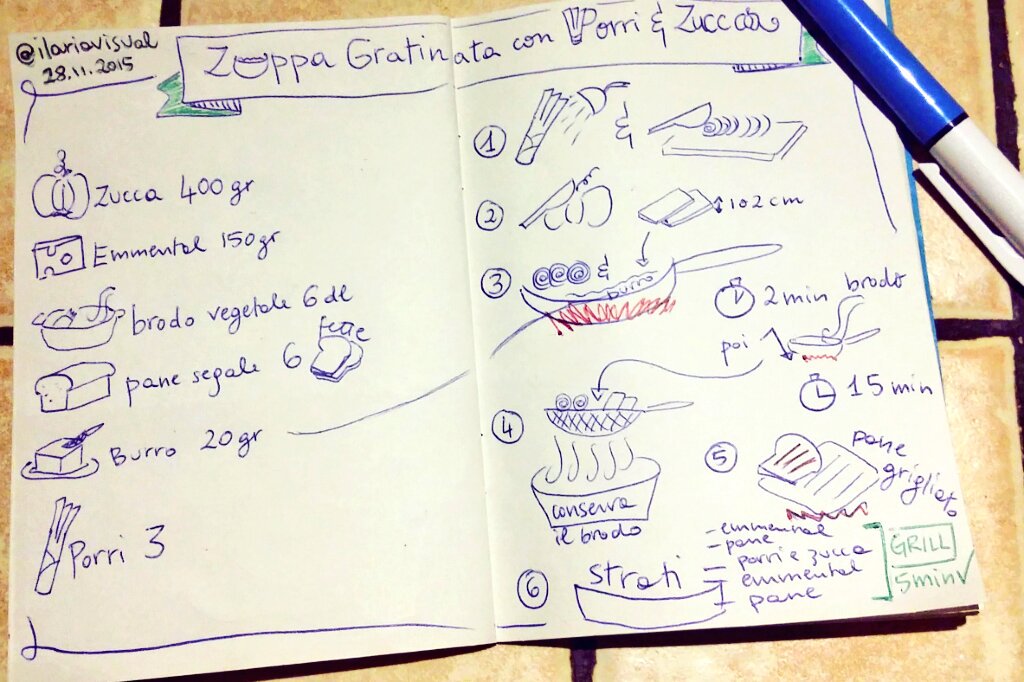 @ilariavisual
28.11.2015
Zuppa Gratinata con Porri & Zucca
Zucca 400 gr
Emmental 150gr
brodo vegetale 6 dl
pane segale 6 fette
Burro 20 gr
Porri 3
1
&
2
1 o 2 cm
3
&
burro
2 min
brodo
poi
15 min
4
conserva
il brodo
5
pane
grigliato
6
strati
- emmental
- pane
- porri e zucca
- emmental
- pane
GRILL
5 min